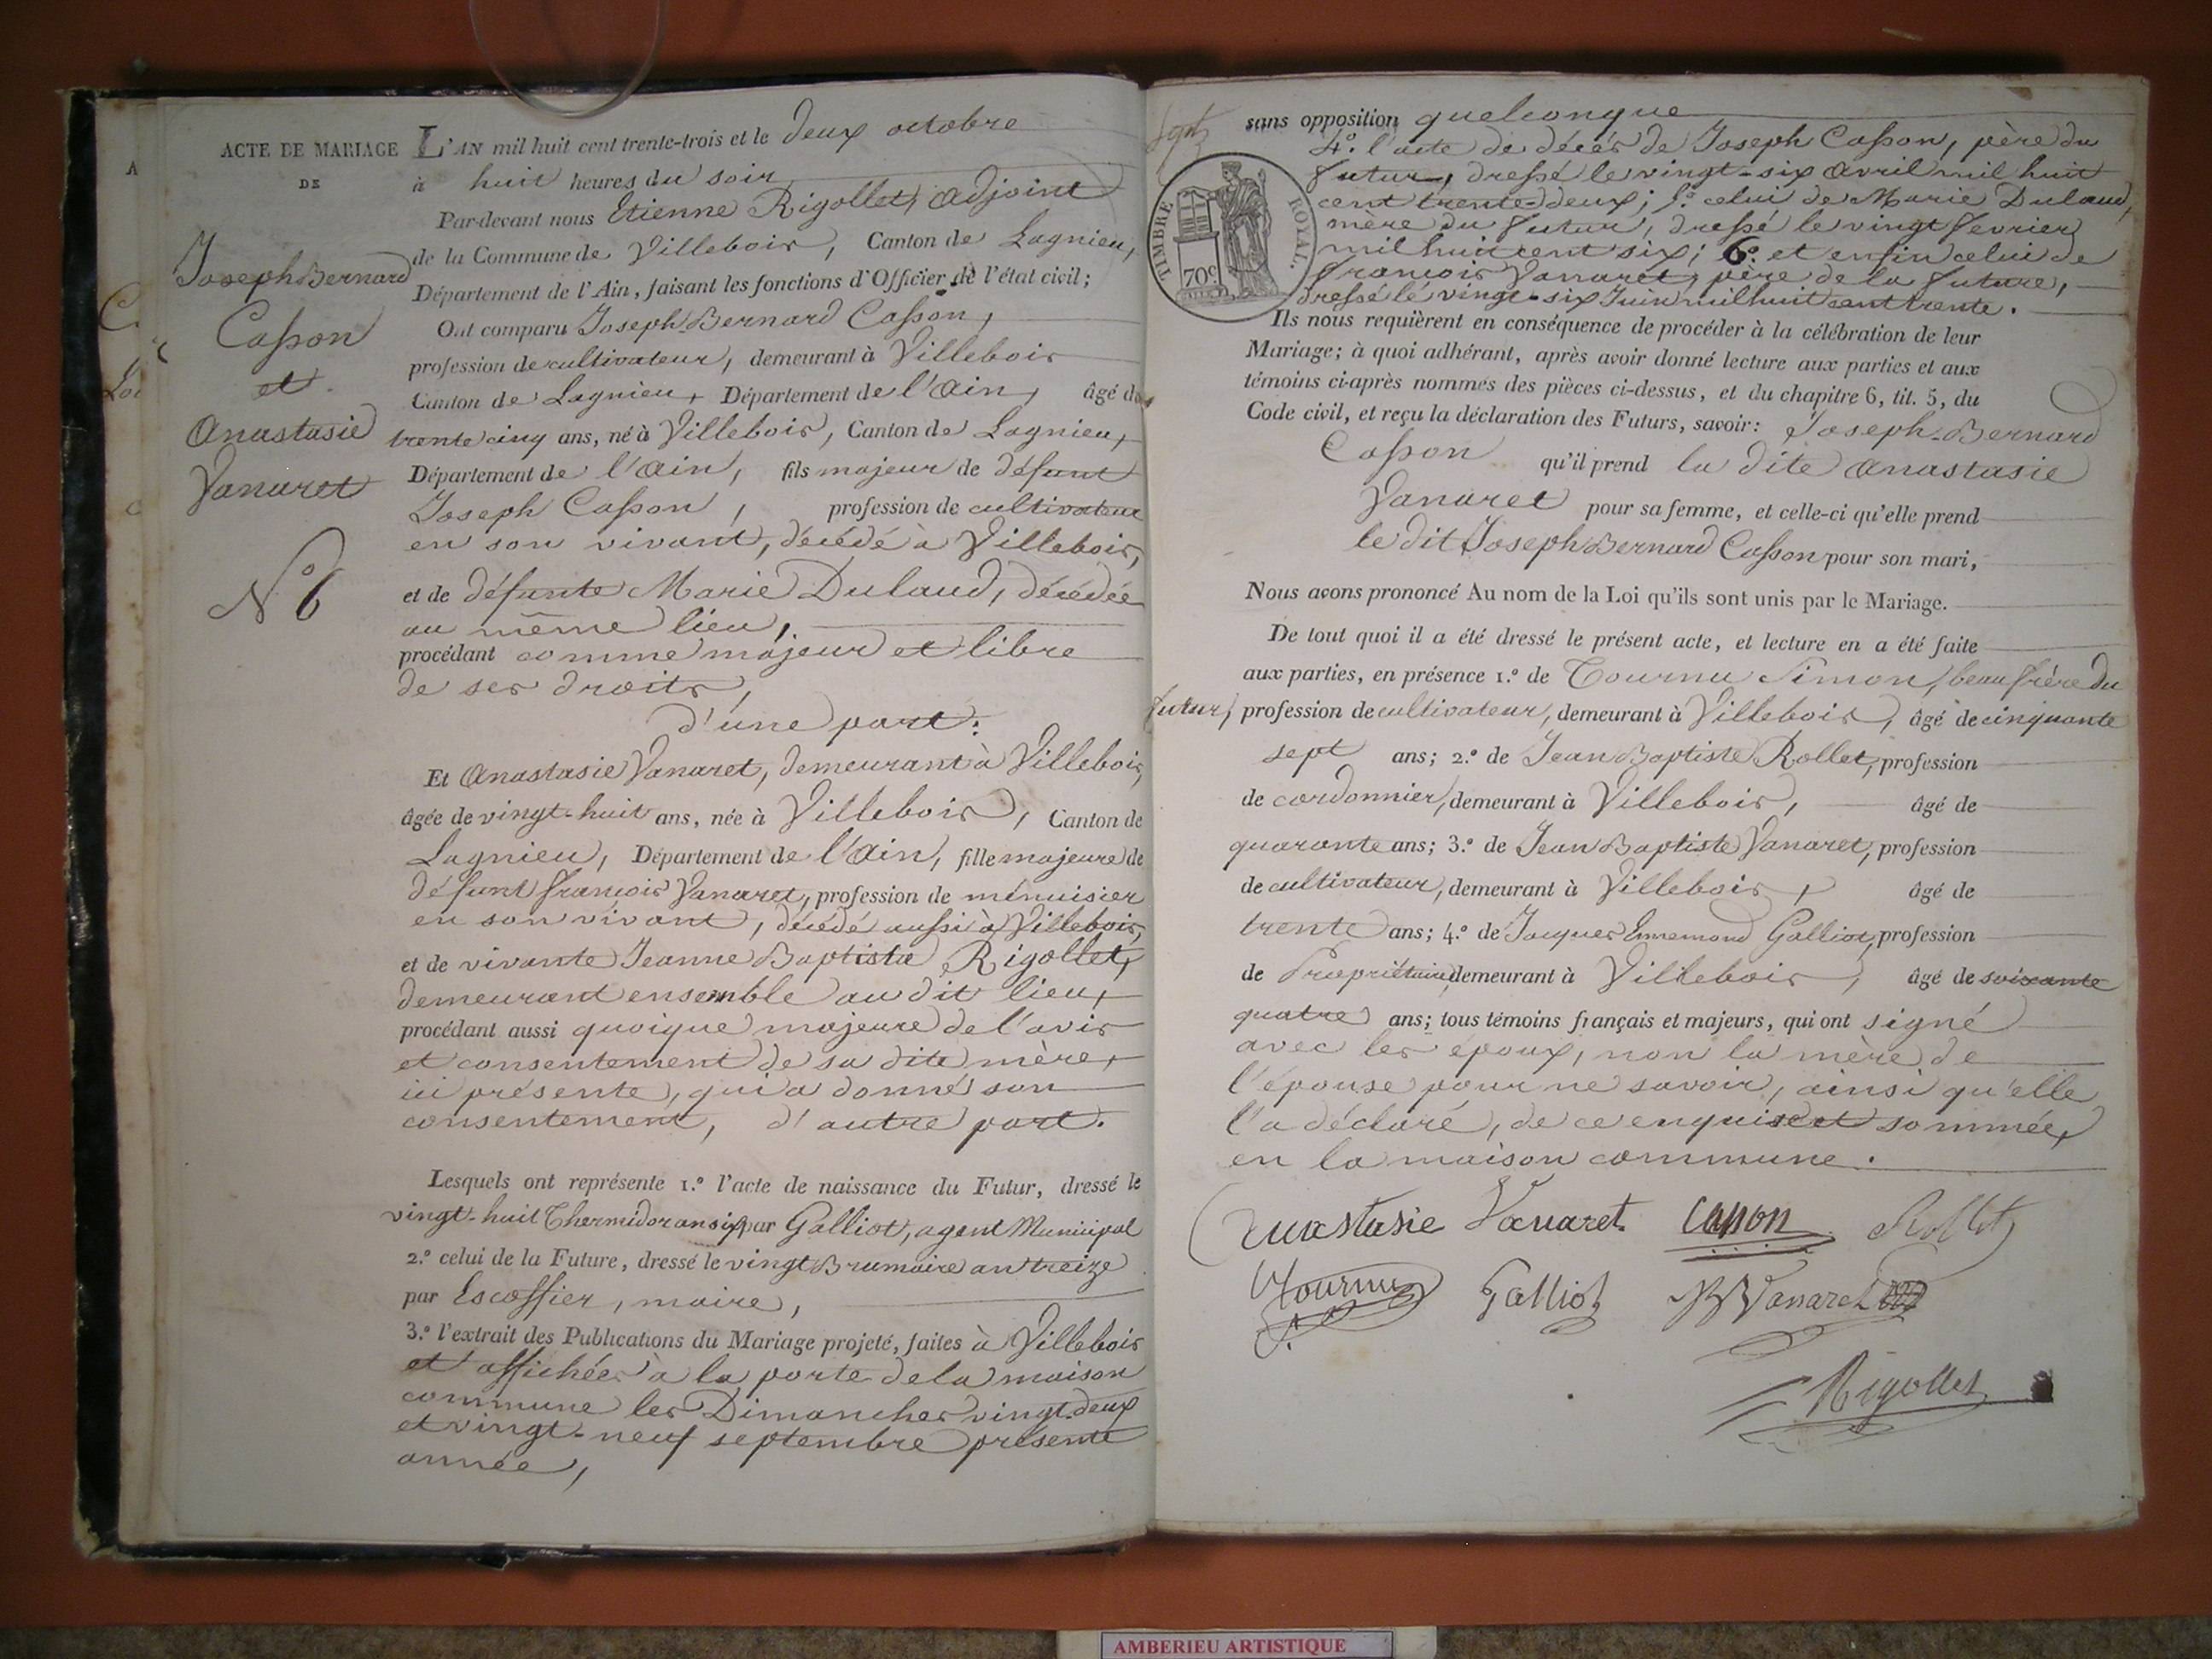 ACTE DE MARIAGE
DE
Joseph Bernard
Casson
et
Anastasie
Vanaret
N° 6
L'AN mil huit cent trente-trois et le deux octobre
à huit heures du soir
Par-devant nous Etienne Rigollet, adjoint
de la Commune de Villebois, Canton de Lagnieu,
Département de l'Ain, faisant les fonctions d'Officier de l'état civil;
Ont comparu Joseph-Bernard Casson,
profession de cultivateur, demeurant à Villebois
Canton de Lagnieu, Département de l'Ain, âgé de
trente cinq ans, né à Villebois, Canton de Lagnieu,
Département de l'Ain, fils majeur de défunt
Joseph Casson, profession de cultivateur
en son vivant, décédé à Villebois,
et de défunte Marie Dulaud, décédée
au même lieu,
procédant comme majeur et libre
de ses droits,
d'une part.
Et Anastasie Vanaret, demeurant à Villebois,
âgée de vingt-huit ans, née à Villebois, Canton de
Lagnieu, Département de l'Ain, fille majeure de
défunt françois Vanaret, profession de ménuisier
en son vivant, décédé aussi à Villebois,
et de vivante Jeanne Baptista Rigollet,
demeurant ensemble au dit lieu,
procédant aussi quoique majeure de l'avis
et consentement de sa dite mère,
ici présente, qui a donné son
consentement, d'autre part.
Lesquels ont représente 1.° l'acte de naissance du Futur, dressé le
vingt-huit Thermidor an six par Galliot, agent Municipal
2.° celui de la Future, dressé le vingt Brumaire an treize
par Escoffier, maire,
3.° l'extrait des Publications du Mariage projeté, faites à Villebois
et affichées à la porte de la maison
commune les Dimanches vingt-deux
et vingt-neuf septembre présente
année,
sans opposition quelconque
4.° l'acte de décès de Joseph Casson, père du
futur, dressé le vingt-six avril mil huit
cent trente-deux; 5.° celui de Marie Dulaud,
mère du futur, dressé le vingt fevrier
mil huit cent six; 6.° et enfin celui de
françois Vanaret, père de la future,
dressé le vingt-six Juin mil huit cent trente.
TIMBRE ROYAL.
70c
Ils nous requièrent en conséquence de procéder à la célébration de leur
Mariage; à quoi adhérant, après avoir donné lecture aux parties et aux
témoins ci-après nommés des pièces ci-dessus, et du chapitre 6, tit. 5, du
Code civil, et reçu la déclaration des Futurs, savoir: Joseph-Bernard
Casson qu'il prend la dite anastasie
Vanaret pour sa femme, et celle-ci qu'elle prend
le dit Joseph Bernard Casson pour son mari,
Nous avons prononcé Au nom de la Loi qu'ils sont unis par le Mariage.
De tout quoi il a été dressé le présent acte, et lecture en a été faite
aux parties, en présence 1.° de Tournu Simon, beau frère du
futur, profession de cultivateur, demeurant à Villebois, âgé de cinquante
sept ans; 2.° de Jean Baptiste Rollet, profession
de cordonnier, demeurant à Villebois, âgé de
quarante ans; 3.° de Jean Baptiste Vanaret, profession
de cultivateur, demeurant à Villebois, âgé de
trente ans; 4.° de Jacques Ennemond Galliot, profession
de Propriétaire, demeurant à Villebois, âgé de soixante
quatre ans; tous témoins français et majeurs, qui ont signé
avec les époux, non la mère de
l'épouse pour ne savoir, ainsi qu'elle
l'a déclaré, de ce enquise et sommée,
en la maison commune.
Anastasie Vanaret. Casson Rollet
Tournu Galliot JB Vanaret
Rigollet
AMBERIEU ARTISTIQUE